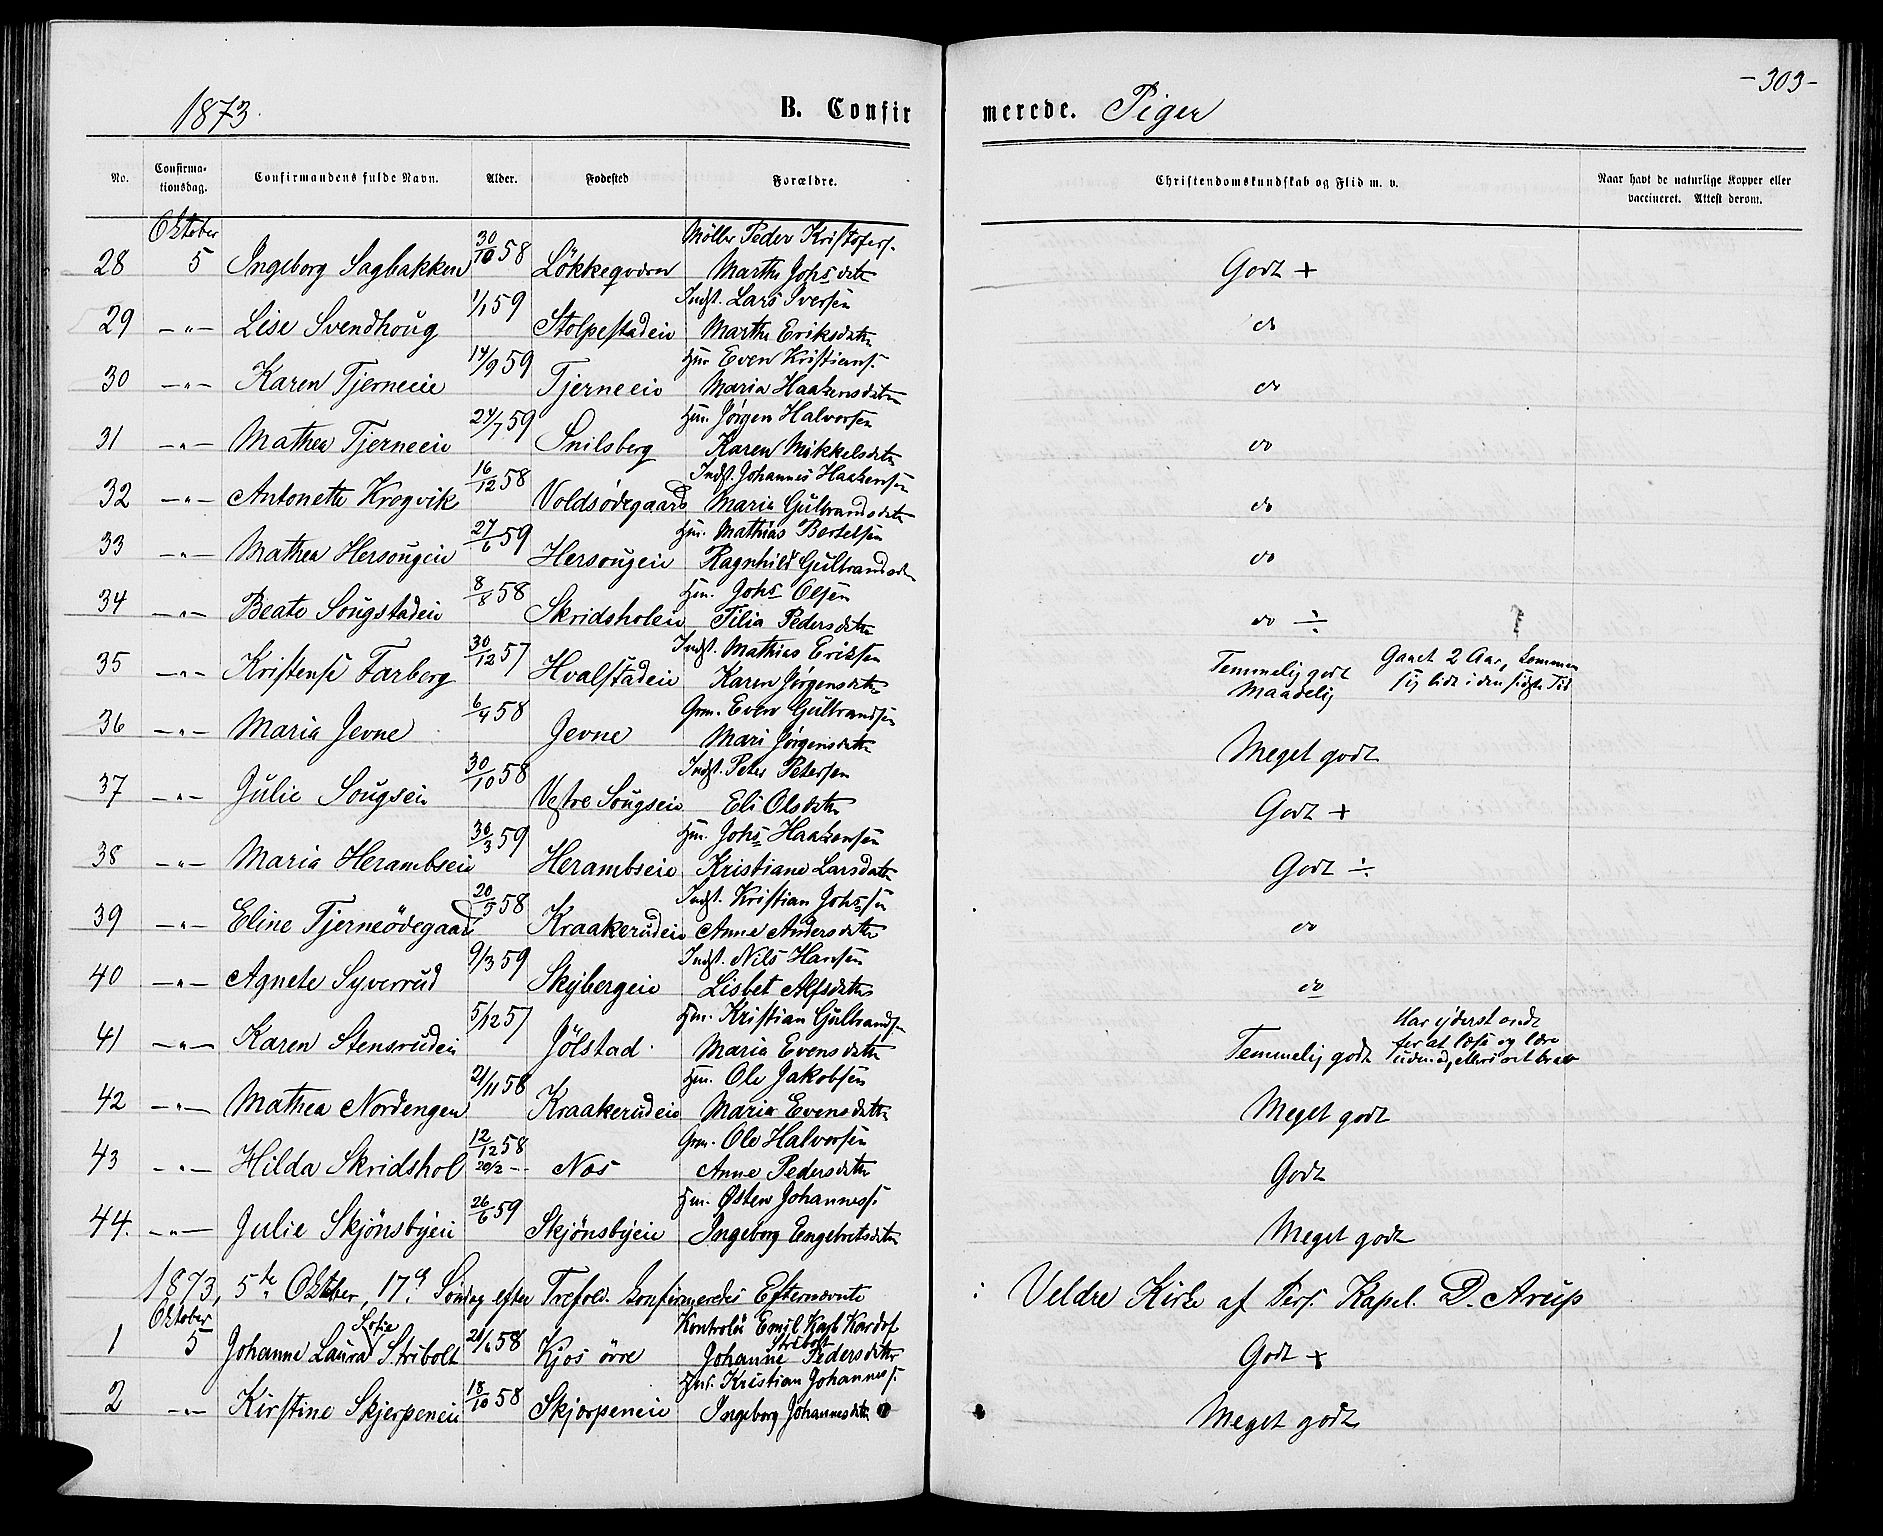 -303-
1873. B. Confirmerede. Piger
No. Confirmationsdag. Confirmandens fulde Navn. Alder. Fødested Forældre. Christendomskundskab og Flid m. v. Naar havt de naturlige Kopper eller vaccineret. Attest derom.
Oktober Møller Peder Kristofers.
28 5 Ingeborg Sagbakken 30/10 58 Løkkeqværn Marthe Johs datter Godt +
Indst. Lars Iversen
29 -"- Lise Svendhoug 1/1 59 Stolpestadeie Marthe Eriksdatter do
Hm. Even Kristians.
30 -"- Karen Tjerneeie 14/9 59 Tjerneeie Maria Haakensdatter do
Hm. Jørgen Halvorsen
31 -"- Mathea Tjerneeie 24/7 59 Snilsberg Karen Mikkelsdatter do
Indst. Johannes Haakensen
32 -"- Antonette Krogvik 16/12 58 Voldsødegaard Maria Gulbrandsdatter do
Hm. Mathias Bertelsen
33 -"- Mathea Hersougeie 27/6 59 Hersougeie Ragnhild Gulbrandsdtr do
Hm. Johs Olsen
34 -"- Beate Sougstadeie 8/8 58 Skridsholeie Tilia Pedersdatter do ÷
Indst. Mathias Eriksen
35 -"- Kristense Farberg 30/12 57 Hvalstadeie Karen Jørgensdatter Temmelig godt Maadelig Gaaet 2 Aar, kommen sig lidt i den sidste Tid
Grm. Even Gulbrandsen
36 -"- Maria Jevne 6/4 58 Jevne Mari Jørgensdatter Meget godt
Indst. Peter Petersen
37 -"- Julie Sougseie 30/10 58 Vestre Sougseie Eli Olsdatter Godt +
Hm. Johs Haakensen
38 -"- Maria Herambseie 30/3 59 Herambseie Kristiane Larsdatter Godt ÷
Indst. Kristian Johssen
39 -"- Eline Tjerneødegaard 20/5 58 Kraakerudeie Anne Andersdatter do
Indst. Nils Hansen
40 -"- Agnete Syverrud 9/3 59 Skybergeie Lisbet Alfsdatter do
Hm. Kristian Gulbrands.
41 -"- Karen Stensrudeie 5/12 57 Jølstad Maria Evensdatter Temmelig godt Har yderst ondt for at læse og lære udenad, ellers vel brav
Hm. Ole Jakobsen
42 -"- Mathea Nordengen 21/11 58 Kraakerudeie Maria Evensdatter Meget godt
Grm. Ole Halvorsen
43 -"- Hilda Skridshol 12/12 58 20/2 -- Nos Anne Pedersdatter Godt
Hm. Østen Johanness.
44. -"- Julie Skjønsbyeie 26/6 59 Skjønsbyeie Ingeborg Engebretsdatter Meget godt
1873, 5te Oktober, 17de Søndag efter Trefold. konfirmeredes Efternævnte i Veldre Kirke af Pers. Kapel. D. Arup
Oktober Kontrolør Emil Karl Kardof Stribolt
1 5 Johanne Laura Sofie Stribolt 20/6 58 Kjos øvre Johanne Pedersdatter Godt +
Hm. Kristian Johanness.
2 -"- Kirstine Skjerpeneie 18/10 58 Skjerpeneie Ingeborg Johannesdatter Meget godt